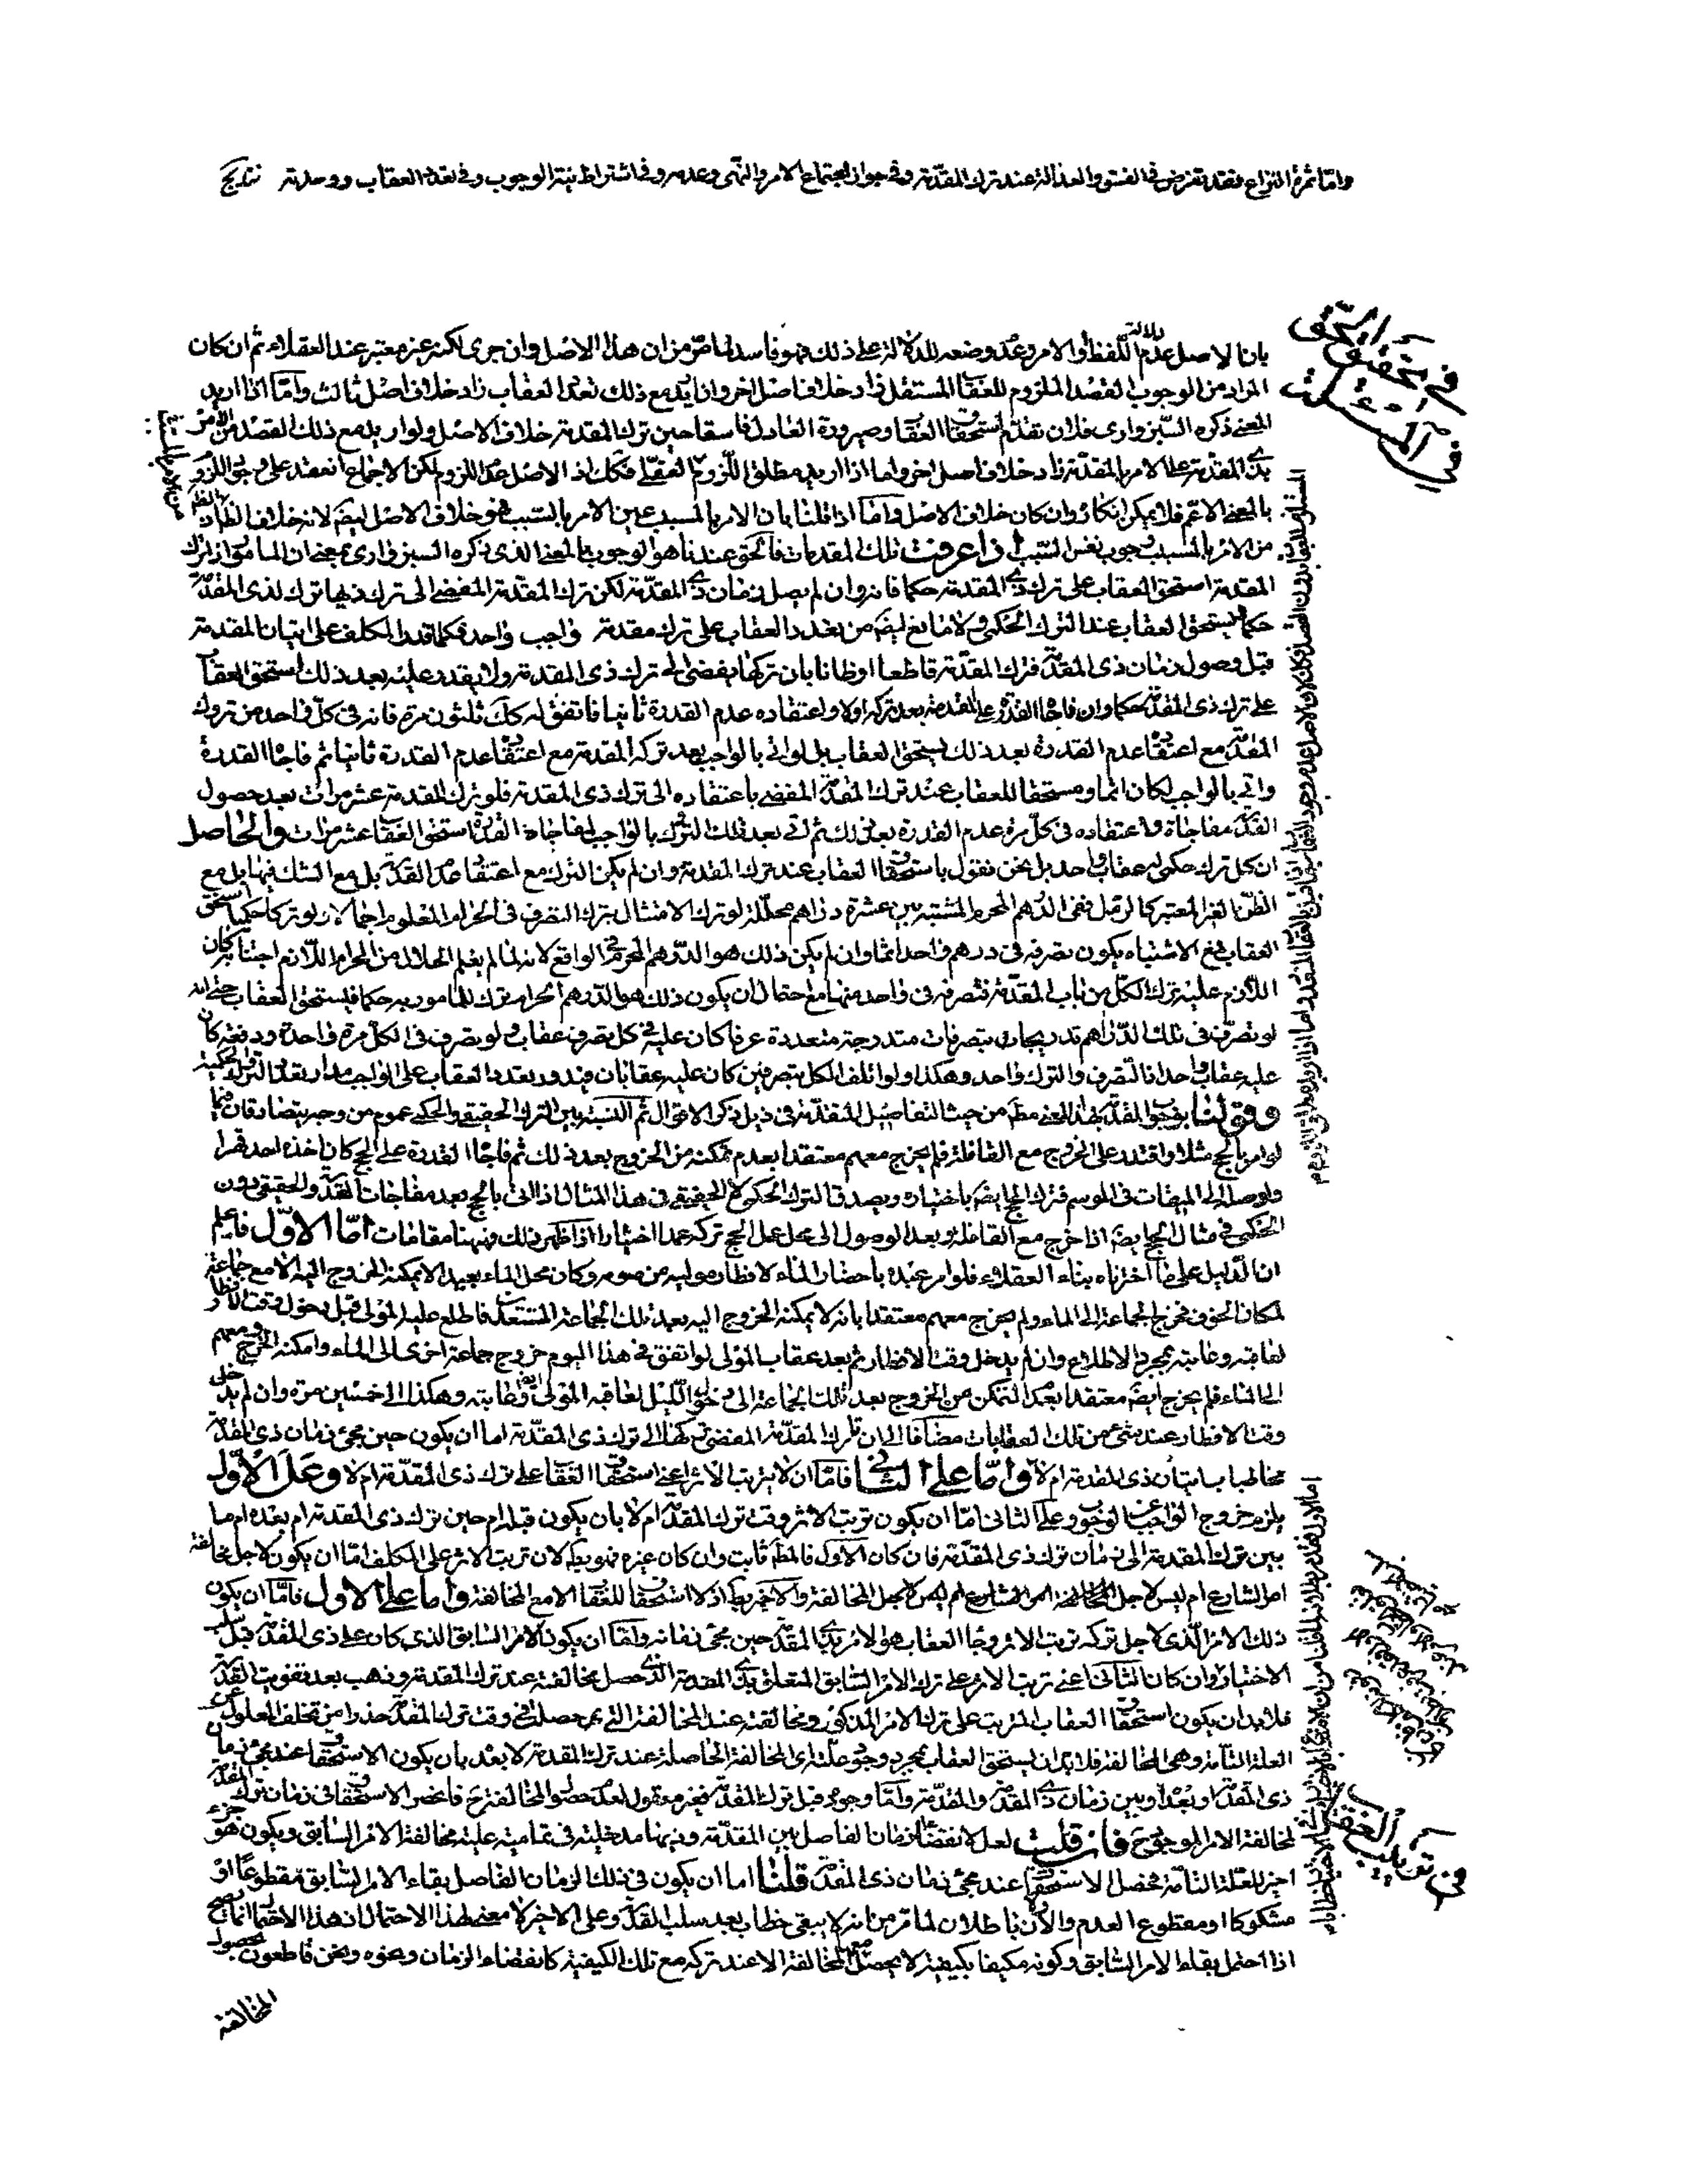 واما ثمرة النزاع فقد تفرض في الفسق والعدالة عند ترك المقدمة وفي جواز اجتماع الامر والنهي وعدمه وفي اشتراط نية الوجوب وفي تعدد العقاب ووحدته نتايج
في تحقيق الحق
في المسئلة
بان الاصل عدم دلالة اللفظ والامر وعدم وضعه للدلالة على ذلك فهو فاسد لما مر من ان هذا الاصل وان جرى لكنه غير معتبر عند العقلاء ثم ان كان
المراد من الوجوب القصد الملزوم للعقاب المستقل زاد خلاف اصل اخر وان اريد مع ذلك تعدد العقاب زاد خلاف اصل ثالث واما اذا اريد
المعنى ذكره السبزواري فلان تقدم استحقاق العقاب وصيرورة العادل فاسقا حين ترك المقدمة خلاف الاصل ولو اريد مع ذلك القصد من الامر
بذي المقدمة على الامر بالمقدمة زاد خلاف اصل اخر واما اذا اريد مطلق اللزوم العقلي فكك اذ الاصل عدم اللزوم لكن الاجماع انعقد على وجوب اللزوم
بالمعنى الاعم فلا يمكن انكاره وان كان خلاف الاصل واما اذا قلنا بان الامر بالمسبب عين الامر بالسبب فهو خلاف الاصل ايضا لانه خلاف الظاهر
من الامر بالمسبب وجوب نفس المسبب اذا عرفت تلك المقدمات فالحق عندنا هو الوجوب بالمعنى الذي ذكره السبزواري بمعنى ان المامور اذا ترك
المقدمة استحق العقاب على ترك ذي المقدمة حكما فانه وان لم يصل زمان ذي المقدمة لكن ترك المقدمة المفضي الى ترك ذيها ترك لذي المقدمة
حكما فيستحق العقاب عند الترك الحكمي ولا مانع ايضا من تعدد العقاب على ترك مقدمة واجب واحد فكلما قدر المكلف على اتيان المقدمة
قبل وصول زمان ذي المقدمة فترك المقدمة قاطعا او ظانا بان تركها يفضي الى ترك ذي المقدمة ولا يقدر عليه بعد ذلك استحق العقاب
على ترك ذي المقدمة حكما وان فاجا القدرة على المقدمة بعد تركه اولا واعتقاده عدم القدرة ثانيا فاتفق له كك ثلثون مرة فانه في كل واحد من تروك
المقدمة مع اعتقاد عدم القدرة بعد ذلك يستحق العقاب بل لو اتى بالواجب بعد تركه المقدمة مع اعتقاد عدم القدرة ثانيا ثم فاجا القدرة
واتى بالواجب لكان اثما ومستحقا للعقاب عند ترك المقدمة المفضي باعتقاده الى ترك ذي المقدمة فلو ترك المقدمة عشر مرات بعد حصول
القدرة مفاجاة واعتقاده في كل مرة عدم القدرة بعد ذلك ثم اتى بعد تلك التروك بالواجب لمفاجاة القدرة استحق العقاب عشر مرات والحاصل
ان كل ترك حكمي له عقاب واحد بل نحن نقول باستحقاق العقاب عند ترك المقدمة وان لم يكن الترك مع اعتقاد عدم القدرة بل مع الشك فيها بل مع
الظن الغير المعتبر كالرمل ففي الدرهم المحرم المشتبه بين عشرة دراهم محللة لو ترك الامتثال بترك التصرف في الحرام المعلوم اجمالا ولو تركا حكميا استحق
العقاب فمع الاشتباه يكون تصرفه في درهم واحد اثما وان لم يكن ذلك هو الدرهم المحرم في الواقع لانه لما لم يعلم الحلال من الحرام اللازم اجتنابه كان
اللازم عليه ترك الكل من باب المقدمة فتصرفه في واحد منها مع احتمال ان يكون ذلك هو الدرهم الحرام ترك للمامور به حكما فيستحق العقاب حتى انه
لو تصرف في تلك الدراهم تدريجا في تصرفات متدرجة متعددة عرفا كان عليه في كل تصرف عقاب ولو تصرف في الكل مرة واحدة ودفعة كان
عليه عقاب واحد اذ التصرف والترك واحد وهكذا ولو اتلف الكل بتصرفين كان عليه عقابان فيدور تعدد العقاب على الواجب مدار تعدد التروك الحكمية
وقولنا بوجوب المقدمة بهذا المعنى من حيث التفاصيل المتقدمة في ذيل ذكر الاقوال ثم النسبة بين الترك الحقيقي والحكمي عموم من وجه يتصادقان فيما
لو امر بالحج مثلا واقتدر على الخروج مع القافلة فلم يخرج معهم معتقدا بعدم تمكنه من الخروج بعد ذلك ثم فاجا القدرة على الحج كان اخذه احد قهرا
واوصله الى الميقات في الموسم فترك الحج ايضا باختياره ويصدق الترك الحكمي لا الحقيقي في هذا المثال اذا اتى بالحج بعد مفاجات القدرة والحقيقي دون
الحكمي في مثال الحج ايضا اذا خرج مع القافلة وبعد الوصول الى محل عمل الحج تركه عمدا اختيارا اذا ظهر ذلك فههنا مقامات اما الاول فاعلم
ان الدليل على ما اخترناه بناء العقلاء فلو امر عبده باحضار الماء لافطار موليه من صومه وكان محل الماء بعيدا لا يمكنه الخروج اليه الا مع جماعة
لمكان الخوف فخرج الجماعة الى الماء ولم يخرج معهم معتقدا بانه لا يمكنه الخروج اليه بعد تلك الجماعة المستعدة فاطلع عليه المولى قبل دخول وقت الافطار
لعاقبه وعاتبه بمجرد الاطلاع وان لم يدخل وقت الافطار ثم بعد عقاب المولى لو اتفق في هذا اليوم خروج جماعة اخرى الى الماء وامكنه الخروج معهم
الى الماء فلم يخرج ايضا معتقدا بعدم التمكن من الخروج بعد تلك الجماعة الى دخول الليل لعاقبه المولى ايضا وعاتبه وهكذا الى خمسين مرة وان لم يدخل
وقت الافطار عند شيء من تلك العقابات مضافا الى ان تارك المقدمة المفضي تركها الى ترك ذي المقدمة اما ان يكون حين مجئ زمان ذي المقدمة
مخاطبا باتيان ذي المقدمة ام لا واما على الثاني فاما ان لا يترتب الاثر اعني استحقاق العقاب على ترك ذي المقدمة ام لا وعلى الاول
يلزم خروج الواجب عن الوجوب وعلى الثاني اما ان يكون ترتب الاثر وقت ترك المقدمة ام لا بان يكون قبله ام حين ترك ذي المقدمة ام بعده ام ما
بين ترك المقدمة الى زمان ترك ذي المقدمة فان كان الاول فالمط ثابت وان كان غيره فهو بط لان ترتب الاثر على المكلف اما ان يكون لاجل مخالفة
امر الشارع ام ليس لاجل المخالفة والاخير بط اذ لا استحقاق للعقاب الا مع المخالفة واما على الاول فاما ان يكون
ذلك الامر الذي لاجل تركه ترتب الاثر وجاء العقاب هو الامر بذي المقدمة حين مجئ زمانه واما ان يكون الامر السابق الذي كان على ذي المقدمة قبل سلب
الاختيار وان كان الثاني اعني ترتب الاثر على ترك الامر السابق المتعلق بذي المقدمة الذي حصل مخالفته عند ترك المقدمة وذهب بعد تفويت القدرة
فلا بد ان يكون استحقاق العقاب المترتب على ترك الامر المذكور ومخالفته عند المخالفة التي حصلت في وقت ترك المقدمة حذرا من تخلف المعلول عن
العلة التامة وهي المخالفة فلا بد ان يستحق العقاب بمجرد وجود علته اي المخالفة الحاصلة عند ترك المقدمة لا بعد بان يكون الاستحقاق عند مجئ زمان
ذي المقدمة او بعده او بين زمان ذي المقدمة والمقدمة واما وجوده قبل ترك المقدمة فغير معقول لعدم حصول المخالفة ح فانحصر الاستحقاق في زمان ترك المقدمة
لمخالفة الامر الموجود ح فان قلت لعل لانقضاء الزمان الفاصل بين المقدمة وذيها مدخلية في تمامية علية مخالفة الامر السابق ويكون هو جزء
اخير للعلة التامة فحصل الاستحقاق عند مجئ زمان ذي المقدمة قلنا اما ان يكون في ذلك الزمان الفاصل بقاء الامر السابق مقطوعا او
مشكوكا او مقطوع العدم والاولان باطلان لما مر من انه لا يبقى خطاب بعد سلب القدرة وعلى الاخير لا معنى لهذا الاحتمال لان هذا الاحتمال انما يصح
اذا احتمل بقاء الامر السابق وكونه مكيفا بكيفية لا يحصل المخالفة الا عند تركه مع تلك الكيفية كانقضاء الزمان ونحوه ونحن قاطعون بحصول
المخالفة
في ترتيب العقاب